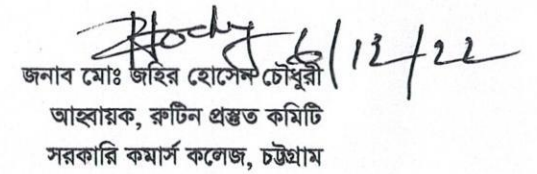 6/12/22
জনাব মোঃ জহির হোসেন চৌধুরী
আহ্বায়ক, রুটিন প্রস্তুত কমিটি
সরকারি কমার্স কলেজ, চট্টগ্রাম